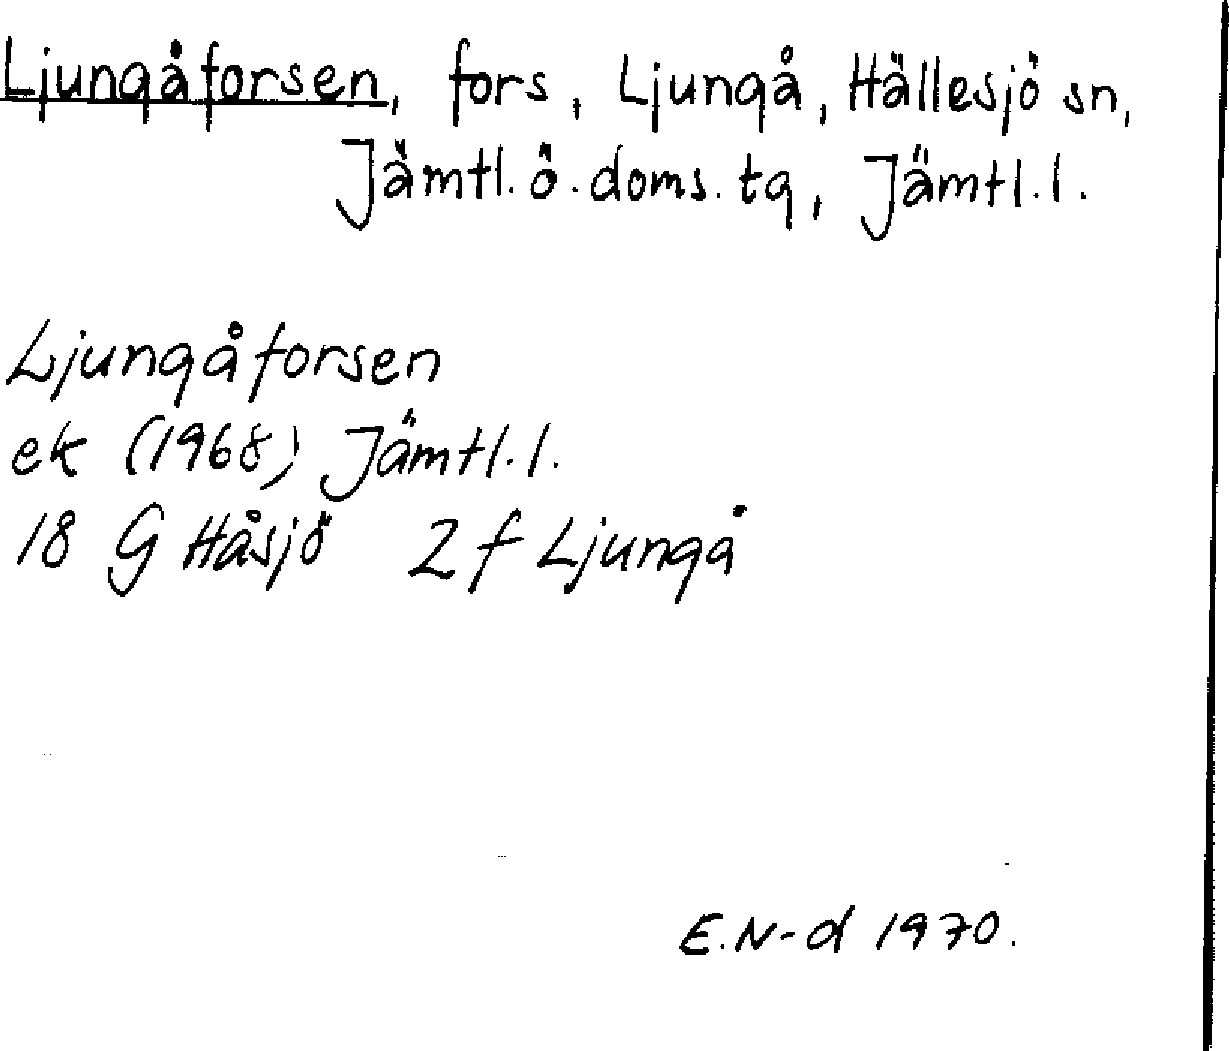 Ljungåforsen, fors, Ljungå, Hällesjö sn,
Jämtl. ö. doms. tg, Jämtl. l.
Ljungåforsen
ek (1968) Jämtl. l.
18 G Håsjö 2 f Ljungå
E. N-d 1970.